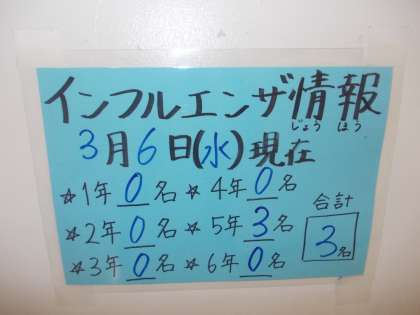 インフルエンザ情報
じょう ほう
3月6日(水)現在
☆1年 0名 ☆4年 0名
合計
☆2年 0名 ☆5年 3名
3名
☆3年 0名 ☆6年 0名